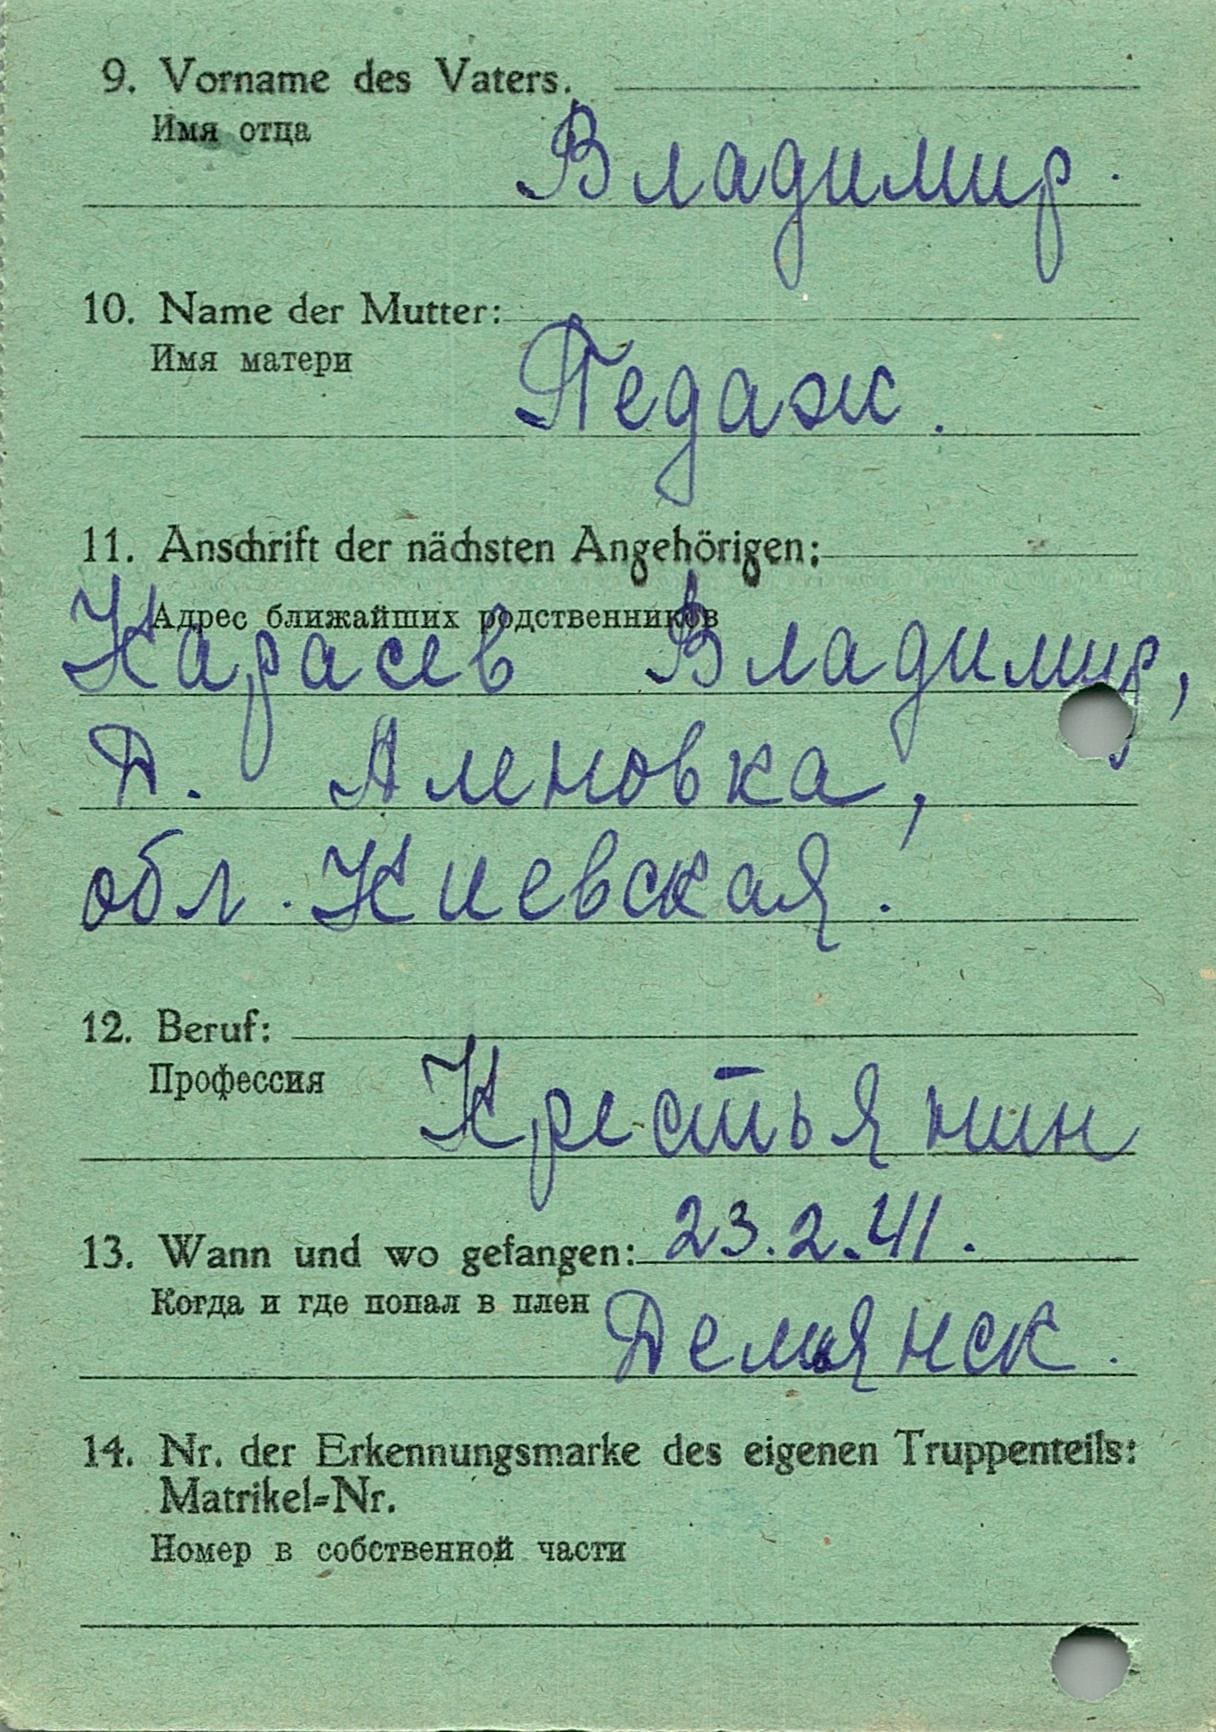 9. Vorname des Vaters.
Имя отца
Владимир.
10. Name der Mutter:
Имя матери
Педаж.
11. Anschrift der nächsten Angehörigen:
Адрес ближайших родственников
Карасев Владимир,
Д. Аленовка,
обл. Киевская.
12. Beruf:
Профессия
Крестьянин
13. Wann und wo gefangen: 23.2.41.
Когда и где попал в плен
Демянск.
14. Nr. der Erkennungsmarke des eigenen Truppenteils:
Matrikel=Nr.
Номер в собственной части